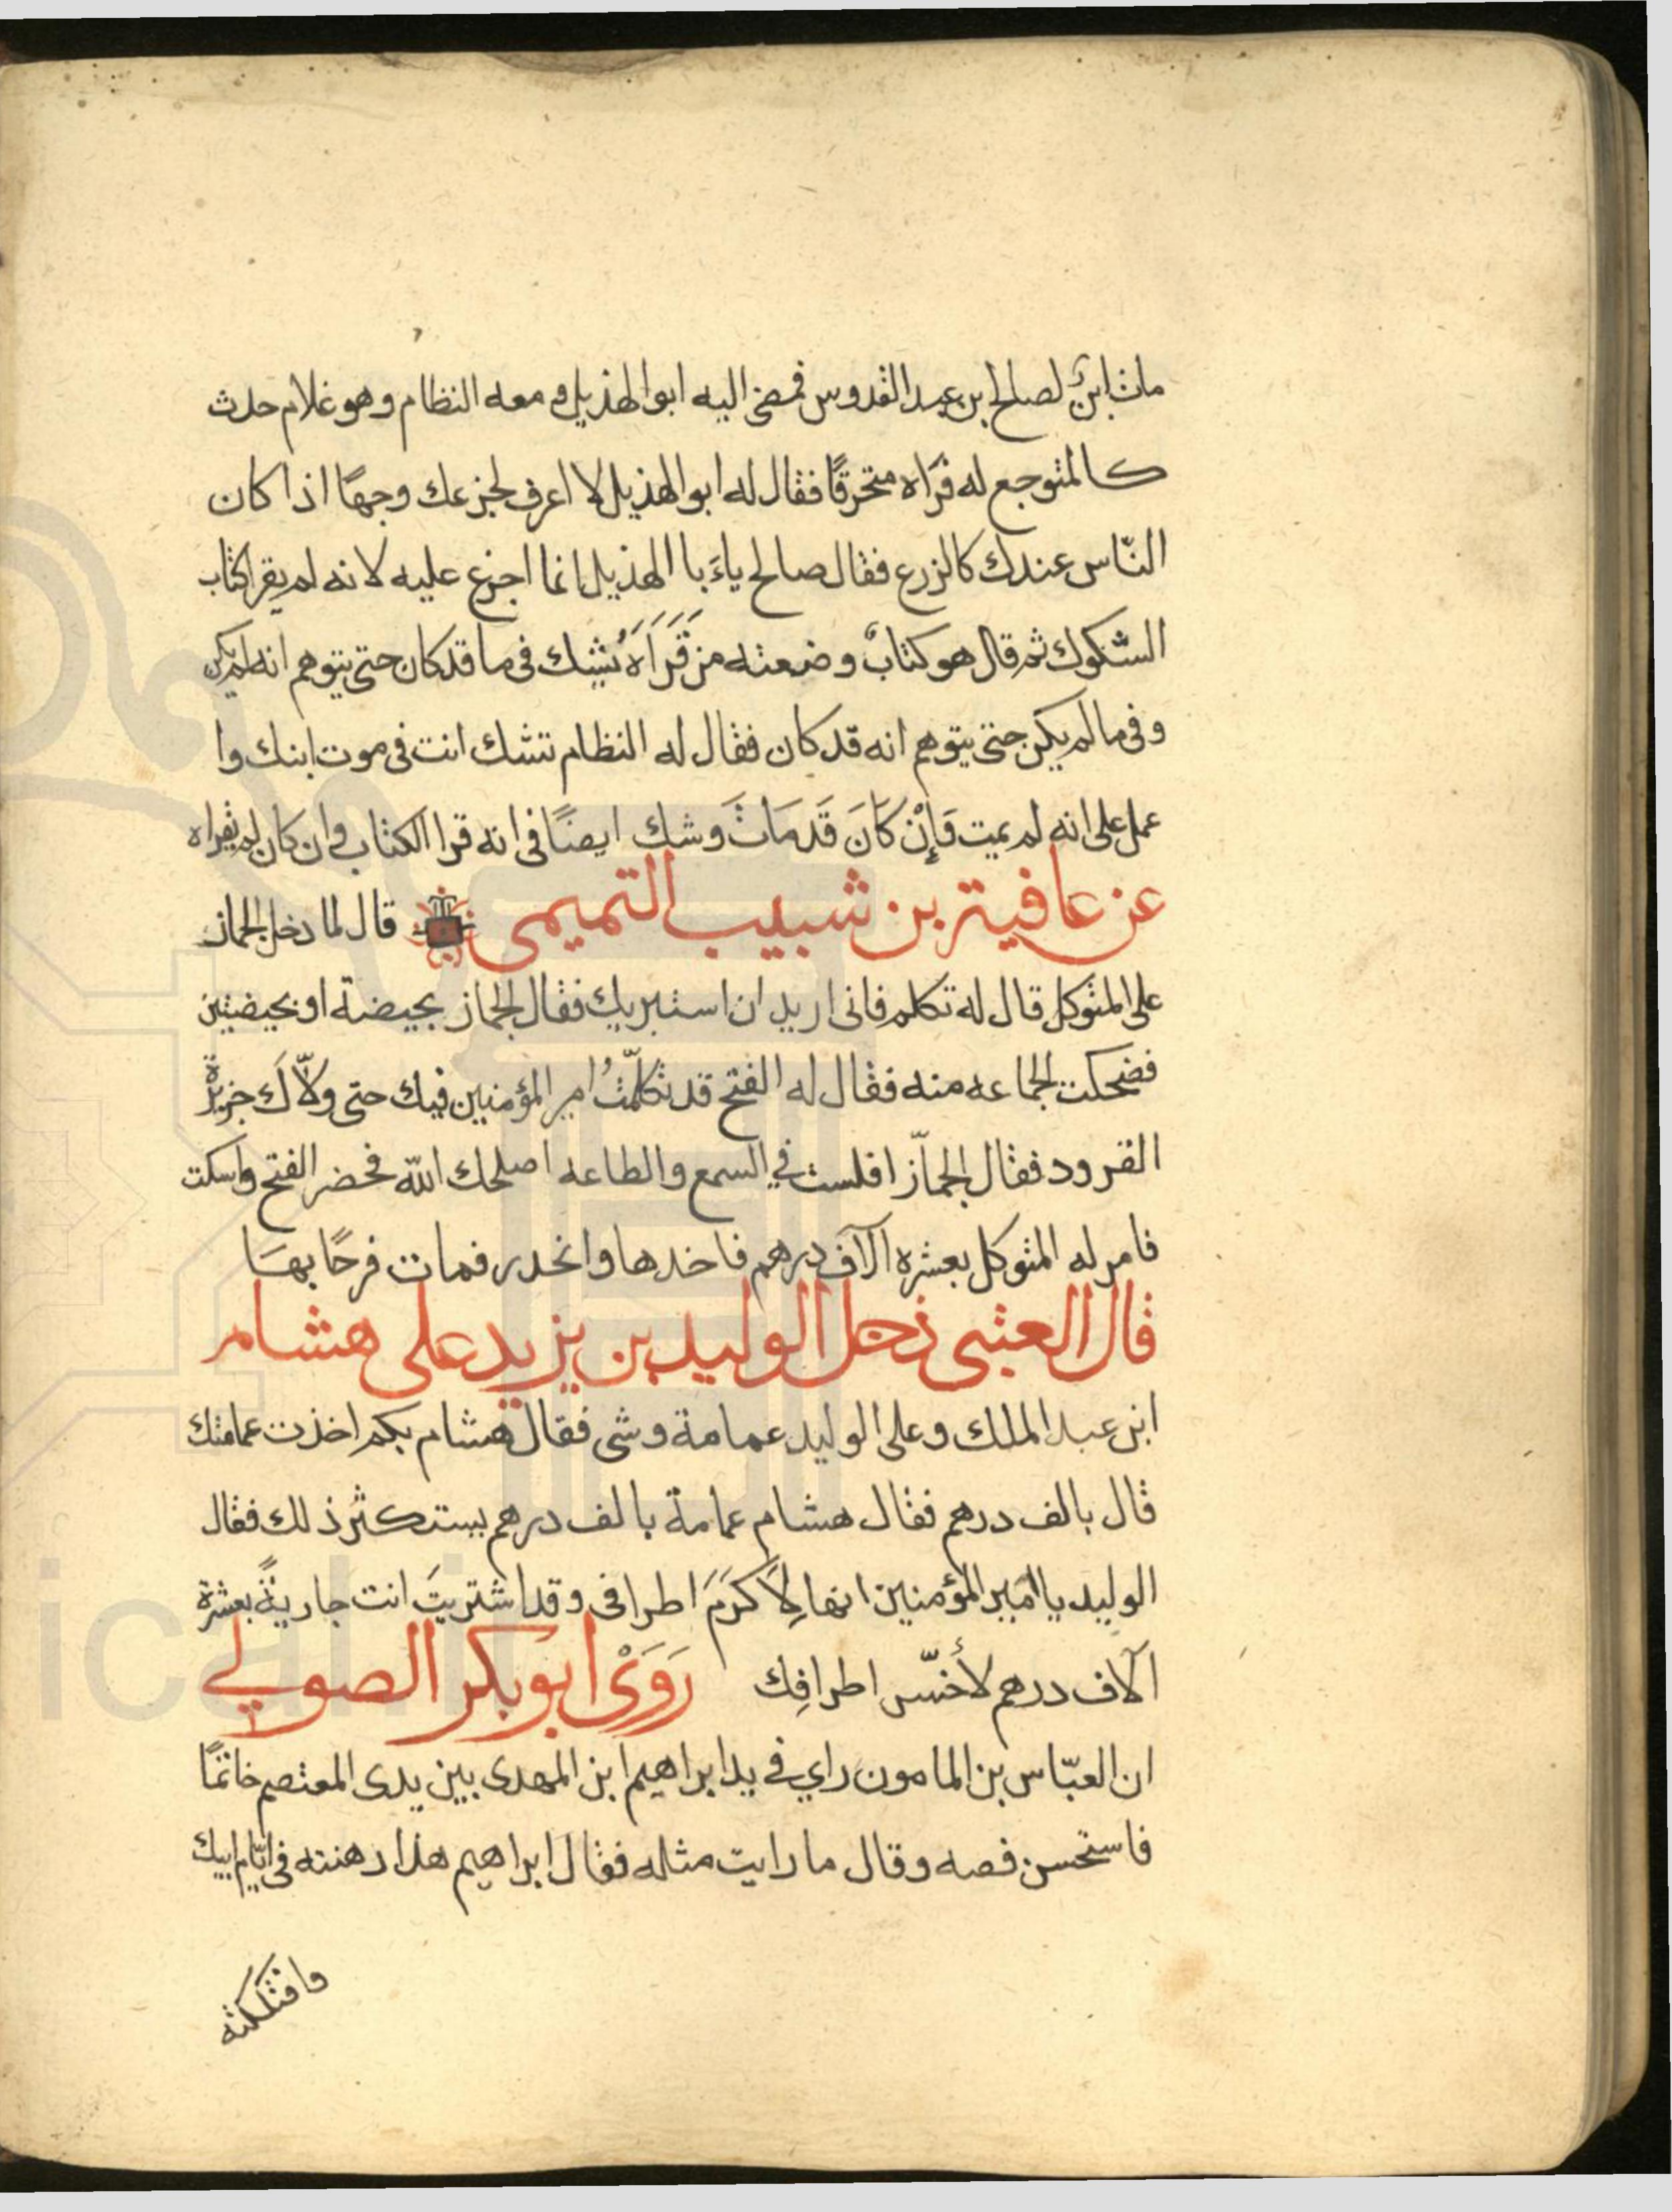 مات ابنٌ لصالح بن عبد القدوس فمضى اليه ابو الهذيل و معه النظام و هو غلام حدث
كالمتوجع له فرَاه متحرقًا فقال له ابو الهذيل لا اعرف لجزعك وجهًا اذا كان
النّاس عندك كالزرع فقال صالح ياءَبا الهذيل انما اجزع عليه لانه لم يقرا كتاب
الشكوك ثم قال هو كتابٌ وضعته من قَرَاَهُ يشك فى ما قد كان حتى يتوهم انه لم يكن
و فى ما لم يكن حتى يتوهم انه قد كان فقال له النظام تشك انت فى موت ابنك وا
عمل على انه لم يمت وَاِنْ كَانَ قَد مَاتَ وَشك ايضًا فى انه قرا الكتاب وان كان لم يقراه
عن عافية بن شبيب التميمى قال لما دخل الجماز
على المتوكل قال له تكلم فانى اريد ان استبريك فقال الجماز بحيضة او بحيضتين
فضحكت الجماعه منه فقال له الفتح قد تكلّمتُ امير المؤمنين فيك حتى ولّاَكَ جزيرةَ
القرود فقال الجمّاز افلست فى السمع والطاعه اصلحك اللّه فحضر الفتح واسكت
فامر له المتوكل بعشره آلآف درهم فاخدها وانحدر فمات فرحًا بهَا
قال العتبى دخل الوليد بن يزيد على هشام
ابن عبد الملك و على الوليد عمامة وشى فقال هشام بكم اخذت عمامتك
قال بالف درهم فقال هشام عمامة بالف درهم يستكثر ذلك فقال
الوليد يا امير المؤمنين انها لِاَكرَمَ اطرافى و قد اشتريتَ انت جاريةً بعشرة
آلاف درهم لأخسّ اطرافِك رَوَىْ ابو بكر الصولى
ان العبّاس بن المامون راي فى يد ابراهيم ابن المهدى بين يدى المعتصم خاتمًا
فاستحسن فصه و قال ما رايت مثله فقال ابراهيم هذا رهنته فى ايّام ابيك
وافتككته